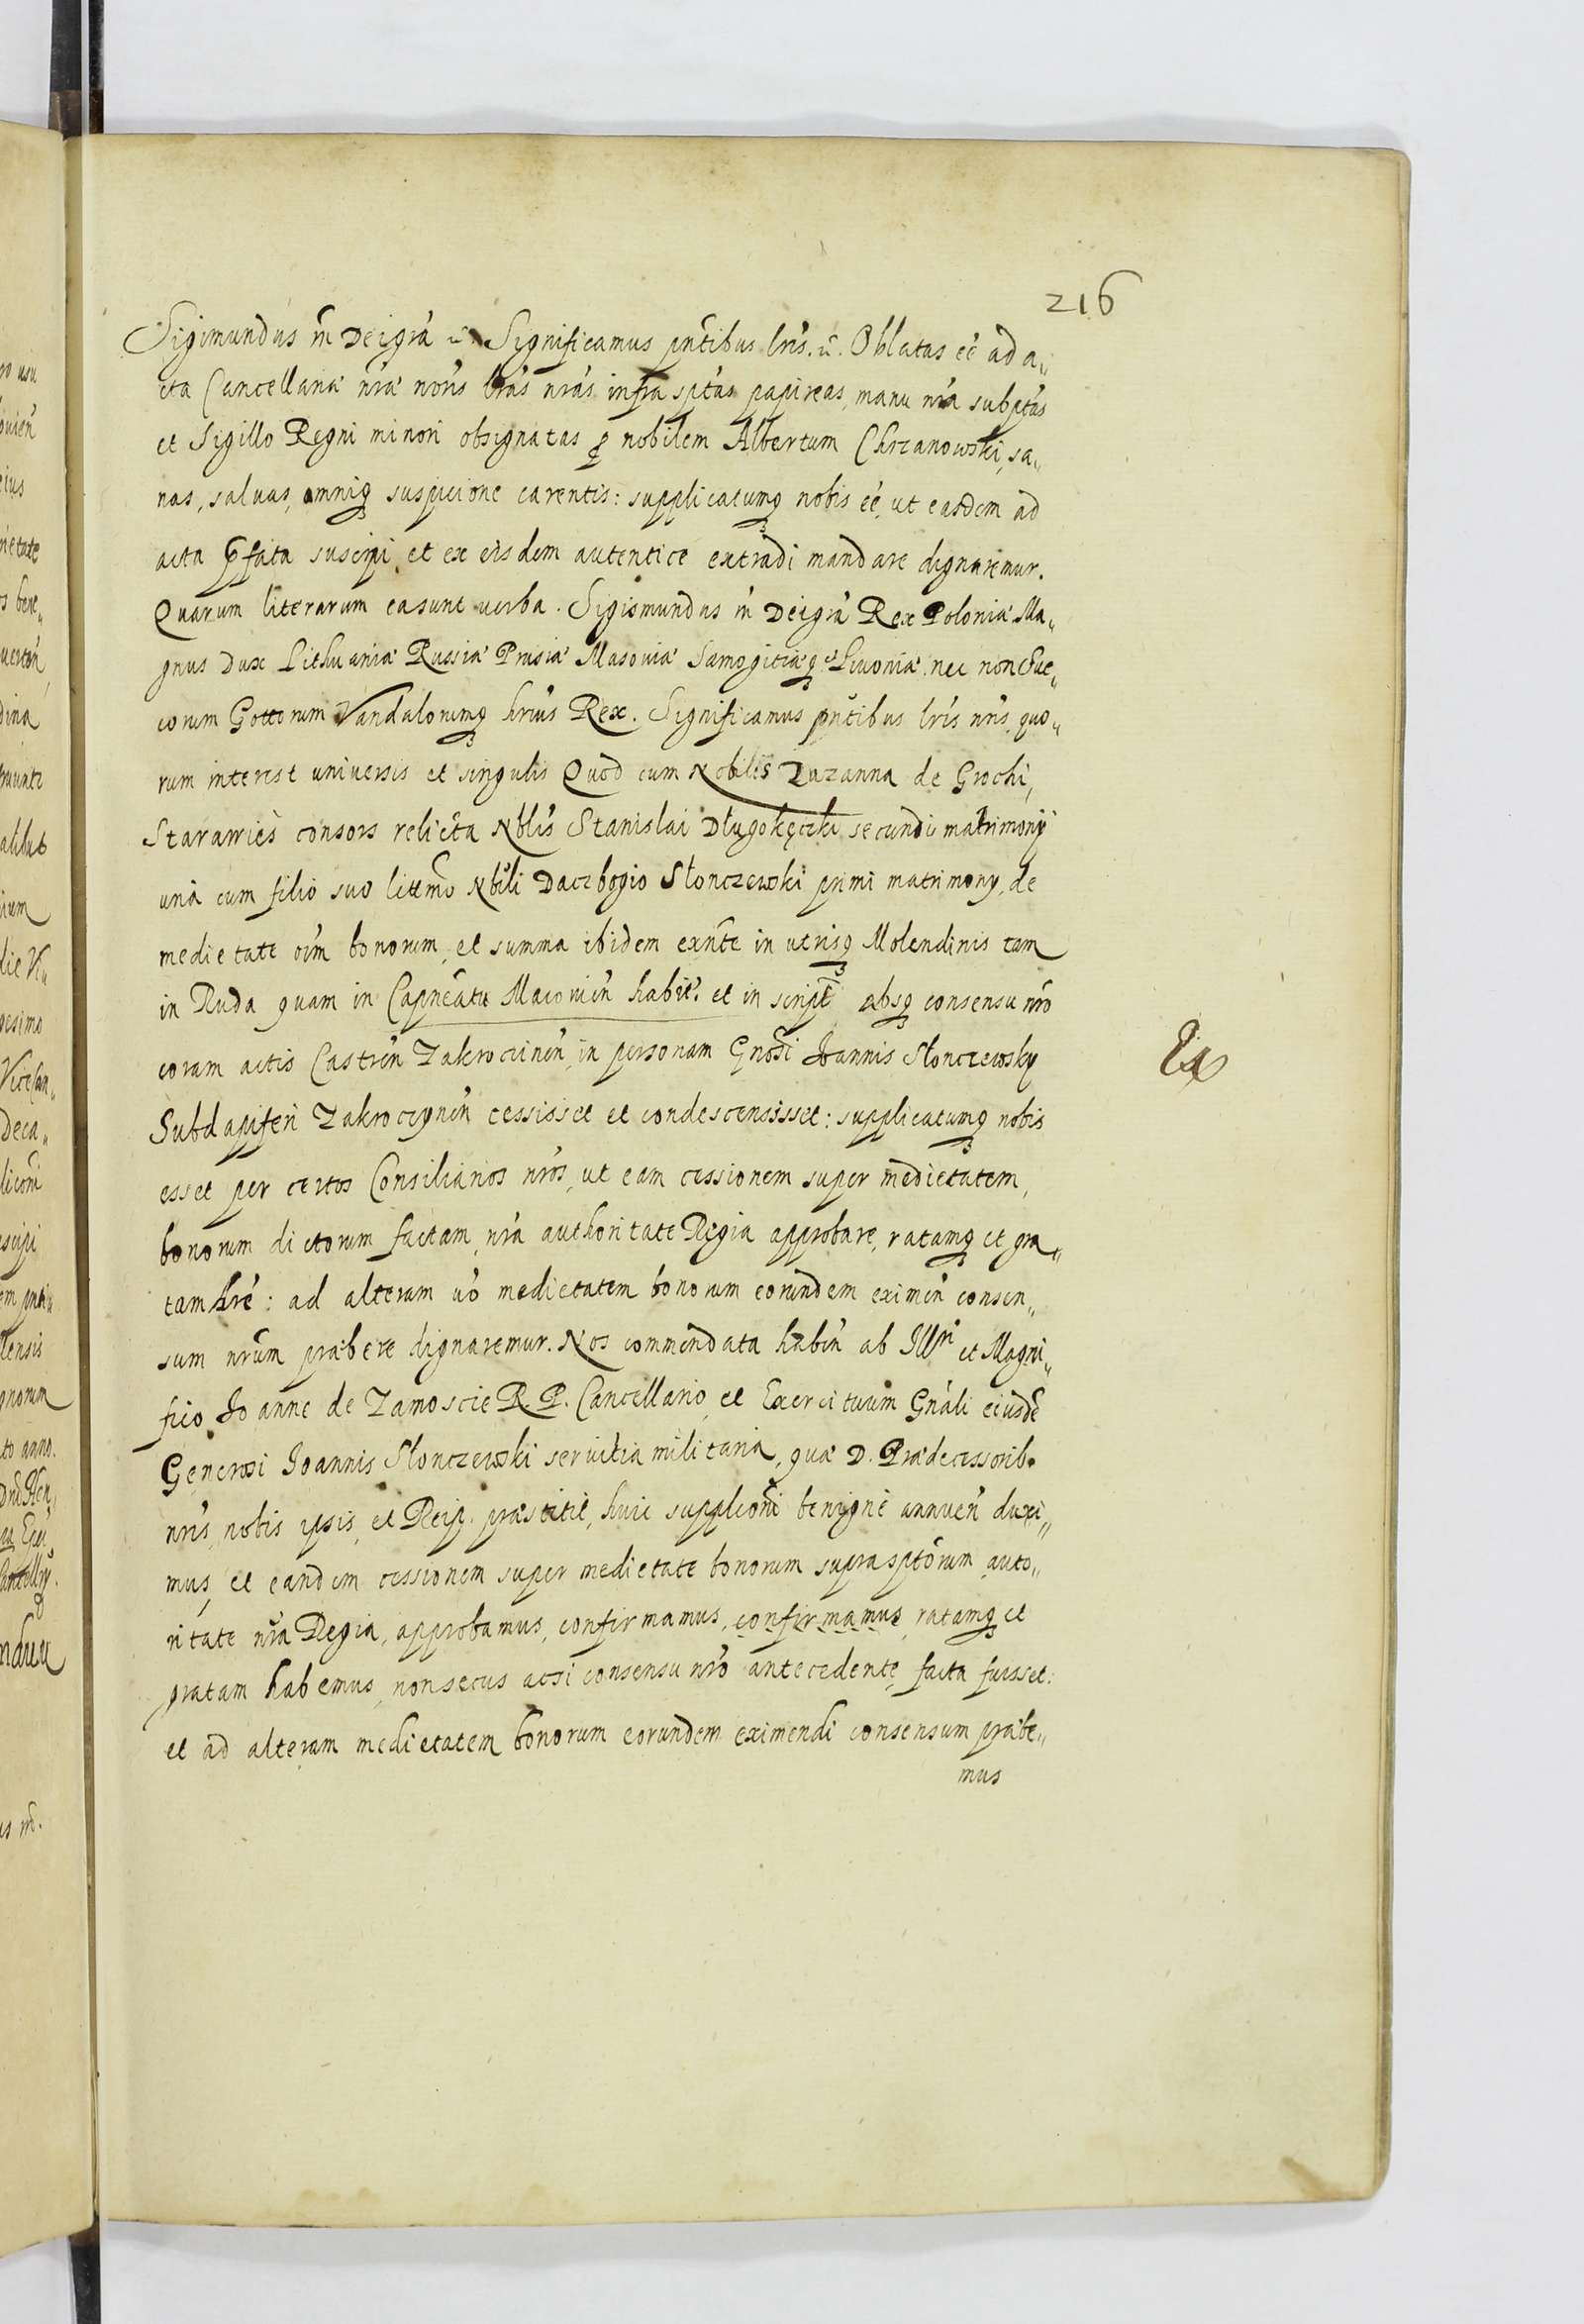 216
Sigimundus 3us Dei grã etc. Significamus pñtibus lrĩs. etc. Oblatas eẽ ad a„
cta Cancellariæ nrã nonis lrãs nrãs infra sptãs papireas, manu nrã subptãs
et Sigillo Regni minori obsignatas ꝑ nobilem Albertum Chrzanowski, sa„
nas, saluas, omniq₃ suspicione carentis: supplicatumq₃ nobis eẽ, ut easdem ad
acta p̃fata suscipi et ex eisdem autentice extradi mandare dignaremur.
Quarum literarum ea sunt verba. Sigismundus Dei grã Rex Poloniæ Ma„
gnus Dux Lithuaniæ Russiæ Prusiæ Masouiæ Samogitiæq₃ Liuoniæ nec non Sue„
corum Gottorum Vandalorumq₃ hrius Rex. Significamus pñtibus lrĩs nrĩs quo„
rum interest universis et singulis Quod cum Nobilis Zuzanna de Grochi,
Starawies consors relicta Nblis Stanislai Długokęczki secundi matrimonÿ
una cum filio suo littmo Nbili Daczbogio Słonczewski primi matrimony, de
medietate oim bonorum, et summa ibidem exñte in utrisq₃ Molendinis tam
in Ruda quam in Capneatu Macouien habit. et in script absq₃ consensu nrõ
coram actis Castreñ Zakrocinen, in personam Gnosi Joannis Słonczewsky
Subdapiferi Zakrocynen cessisset et condescensisset: supplicatumq₃ nobis
esset per certos Consiliarios nrõs, ut eam cessionem super medietatem,
bonorum dictorum factam, nrã authoritate Regia approbare, ratamq₃ et gra„
tam hrẽ: ad alteram uõ medietatem bonorum eorundem eximeñ consen„
sum nrũm præbere dignaremur. Nos commendata habeñ ab Illri et Magni„
fico Joanne de Zamoscie R. P. Cancellario et Exercituum Gnãli eiusdẽ
Generosi Joannis Słonczewski seruitia militaria, quæ D. Prædecessorib.
nrĩs, nobis ipsis, et Reip. præstitit, huic supplicõni benigne annueñ duxi„
mus, et eandem cessionem super medietate bonorum suprasptõrum auto„
ritate nrã Regia, approbamus, confirmamus, confirmamus, ratamq₃ et
gratam habemus, non secus acsi consensu nrõ antecedente, facta fuisset:
et ad alteram medietatem bonorum eorundem eximendi consensum præbe„
mus